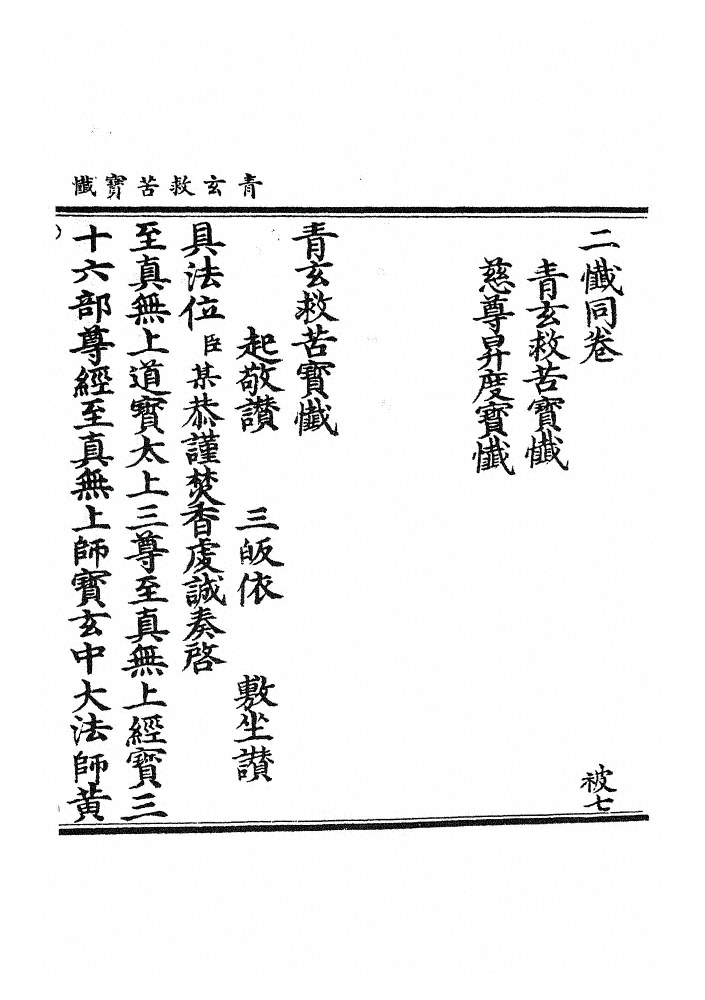 青玄救苦寶懺
二懺同卷
被七
青玄救苦寶懺
慈尊昇度寶懺
青玄救苦寶懺
起敬讃 三皈依 敷坐讃
具法位臣某恭謹焚香虔誠奏啓
至真無上道寶太上三尊至真無上經寶三
十六部尊經至真無上師寶玄中大法師黃